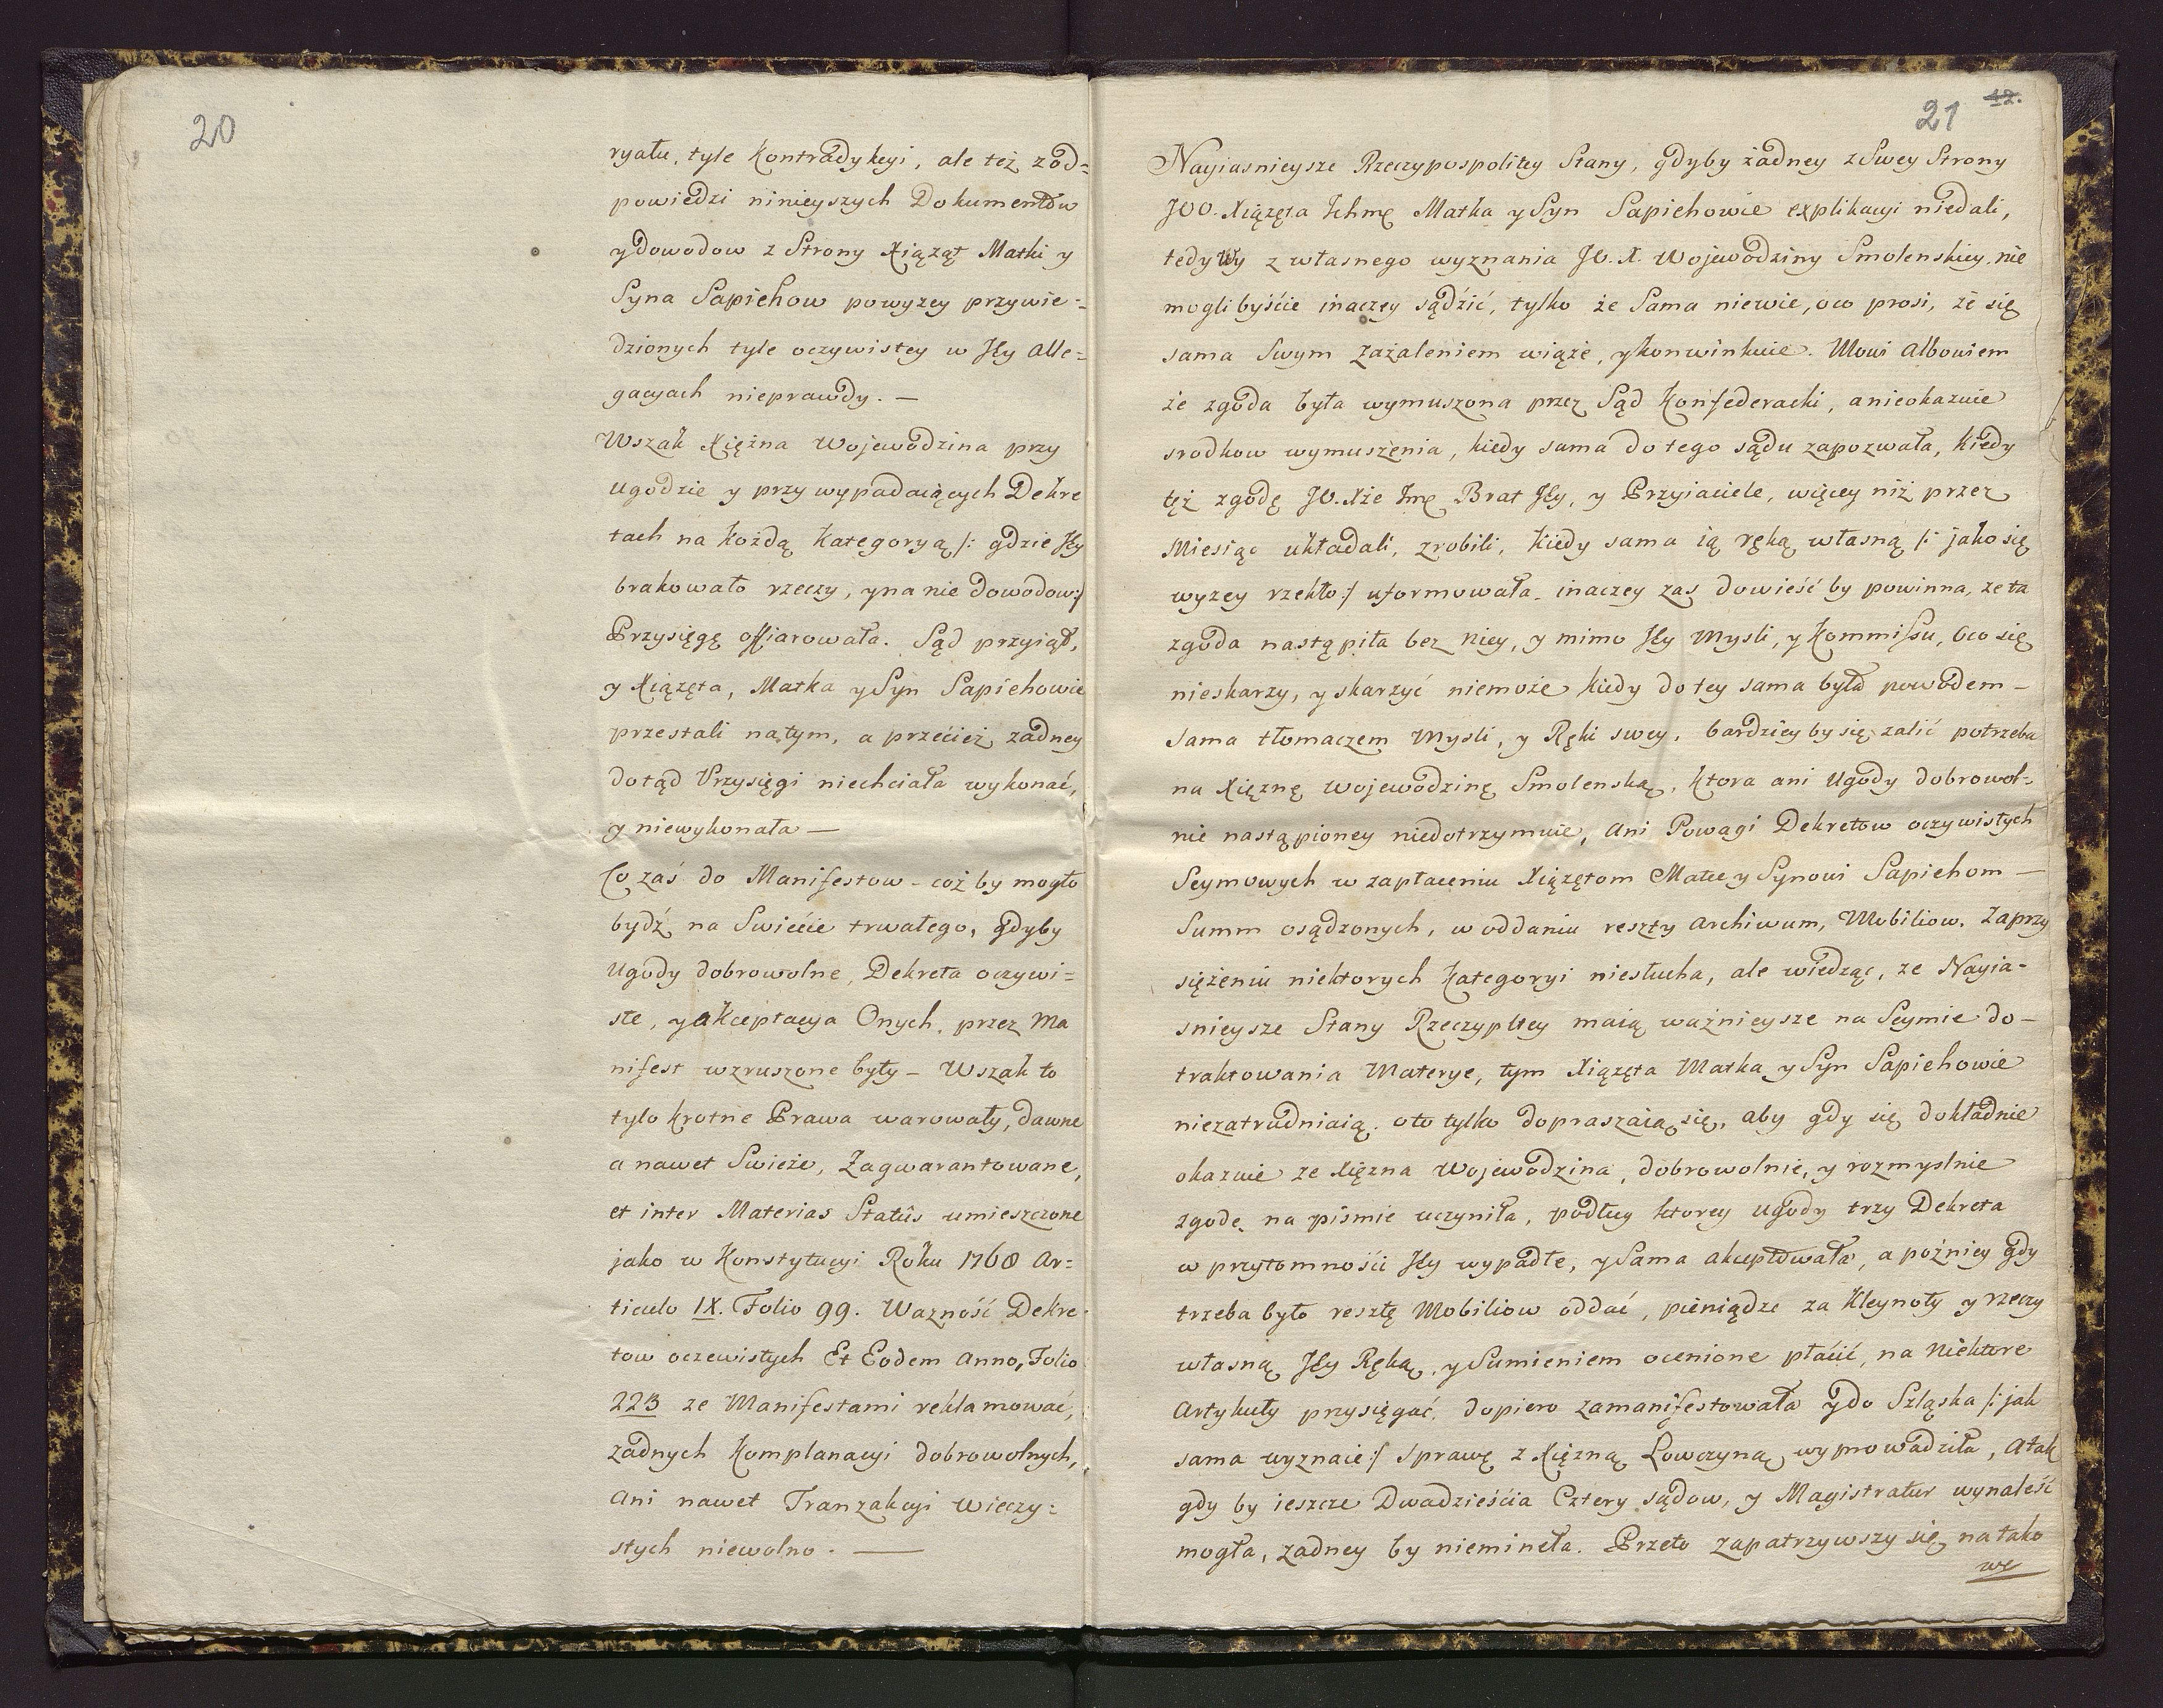 20
ryału, tyle Kontradykcyi, ale też z od=
powiedzi ninieyszych Dokumentow
y dowodow z Strony Xiążąt Matki y
Syna Sapiehow powyzey przywie=
dzionych tyle oczywistey w Jey Alle=
gacyach nieprawdy. —
Wszak Xiężna Wojewodzina przy
Ugodzie y przy wypadaiących Dekre
tach na Kożdą Kategoryą /: gdzie Jey
brakowało rzeczy, y na nie Dowodow :/
Przysięgę offiarowała. Sąd przyiął,
y Xiążęta, Matka y Syn Sapiehowie
przestali na tym, a przeciéż zadney
dotąd Przysięgi niechciała wykonać,
y niewykonała —
Co zaś do Manifestow - coż by mogło
bydź na Swiecie trwałego, gdyby
Ugody dobrowolne, Dekreta oczywi=
ste, y akceptacya Onych, przez Ma
nifest wzruszone były - Wszak to
tylo krotne Prawa warowały, dawne
a nawet Swieże, Zagwarantowane,
et inter Materias Statûs umieszczone
jako w Konstytucyi Roku 1768 Ar=
ticulo IX. Folio 99. Wazność Dekre=
tow oczewistych Et Eodem Anno, Folio
223 ze Manifestami reklamować,
żadnych Komplanacyi dobrowolnych,
Ani nawet Tranzakcyi wieczy=
stych niewolno. —
21 12.
Nayiasnieysze Rzeczypospolitey Stany, gdyby żadney z Swey Strony
JOO. Xiążęta Ichmę Matka y Syn Sapiehowie explikacyi niedali,
tedy Wy z własnego wyznania JO. X. Wojewodziny Smolenskiey, nie
moglibyście inaczey sądźić, tylko że Sama niewie, oco prosi, że się
sama Swym zażaleniem wiąże, y konwinkuie. Mowi Albowiem
że zgoda była wymuszona przez Sąd Konfederacki, a nieokazuie
srodkow wymuszenia, kiedy sama do tego sądu zapozwała, Kiedy
tęż zgodę JO. Xże Jmę Brat Jey, y Przyiaciele, więcey niż przez
Miesiąc układali, zrobili, Kiedy sama ią ręką własną /: jako się
wyzey rzekło :/ uformowała. inaczey zas dowieść by powinna, ze ta
zgoda nastąpiła bez Niey, y mimo Jey Mysli, y Kommissu, Oco się
nieskarzy, y skarzyć niemoże kiedy do tey sama była powodem —
sama tłomaczem Mysli, y Ręki swey, bardziey by się zalić potrzeba
na Xięznę Wojewodzinę Smolenską, Ktora ani Ugody dobrowol=
nie nastąpioney niedotrzymuie, Ani Powagi Dekretow oczywistych
Seymowych w zapłaceniu Xiązętom Matce y Synowi Sapiehom —
Summ osądzonych, w oddaniu reszty Archiwum, Mobiliow, Zaprzy
siężeniu niektorych Kategoryi niesłucha, ale wiedząc, ze Nayia=
snieysze Stany Rzeczypltey maią ważnieysze na Seymie do —
traktowania Materye, tym Xiązęta Matka y Syn Sapiehowie
niezatrudniaią. oto tylko dopraszaią się, aby gdy się dokładnie
okazuie ze Xięzna Wojewodzina, dobrowolnie, y rozmyslnie
zgodę na pismie uczyniła, podług ktorey ugody trzy Dekreta
w przytomności Jey wypadłe, y Sama akceptowała, a poźniey gdy
trzeba było resztę Mobiliow oddać, pieniądze za Kleynoty y rzeczy
własną Jey Ręką, y Sumieniem ocenione płacić, na Niektore
Artykuły przysięgać, dopiero zamanifestowała y do Szląska /: jak
sama wyznaie :/ sprawę z Xiężną Łowczyną wyprowadziła, A tak
gdy by ieszcze Dwadzieścia Cztery sądow, y Magistratur wynaleść
mogła, zadney by niemineła. Przeto zapatrzywszy się na tako
we